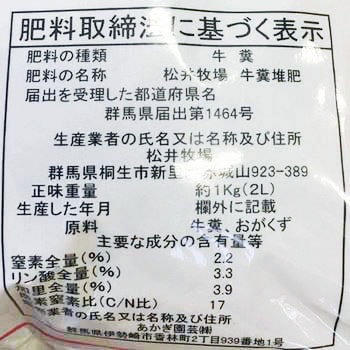 肥料取締法に基づく表示
肥料の種類 牛糞
肥料の名称 松井牧場 牛糞堆肥
届出を受理した都道府県名
群馬県届出第1464号
生産業者の氏名又は名称及び住所
松井牧場
群馬県桐生市新里 赤城山923-389
正味重量 約1Kg(2L)
生産した年月 欄外に記載
原料 牛糞、おがくず
主要な成分の含有量等
窒素全量(%) 2.2
リン酸全量(%) 3.3
加里全量(%) 3.9
炭素窒素比(C/N比) 17
業者の氏名又は名称及び住所
あかぎ園芸㈱
群馬県伊勢崎市香林町2丁目939番地1号